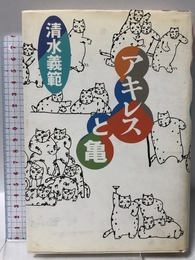 清水義範
アキレス
と亀